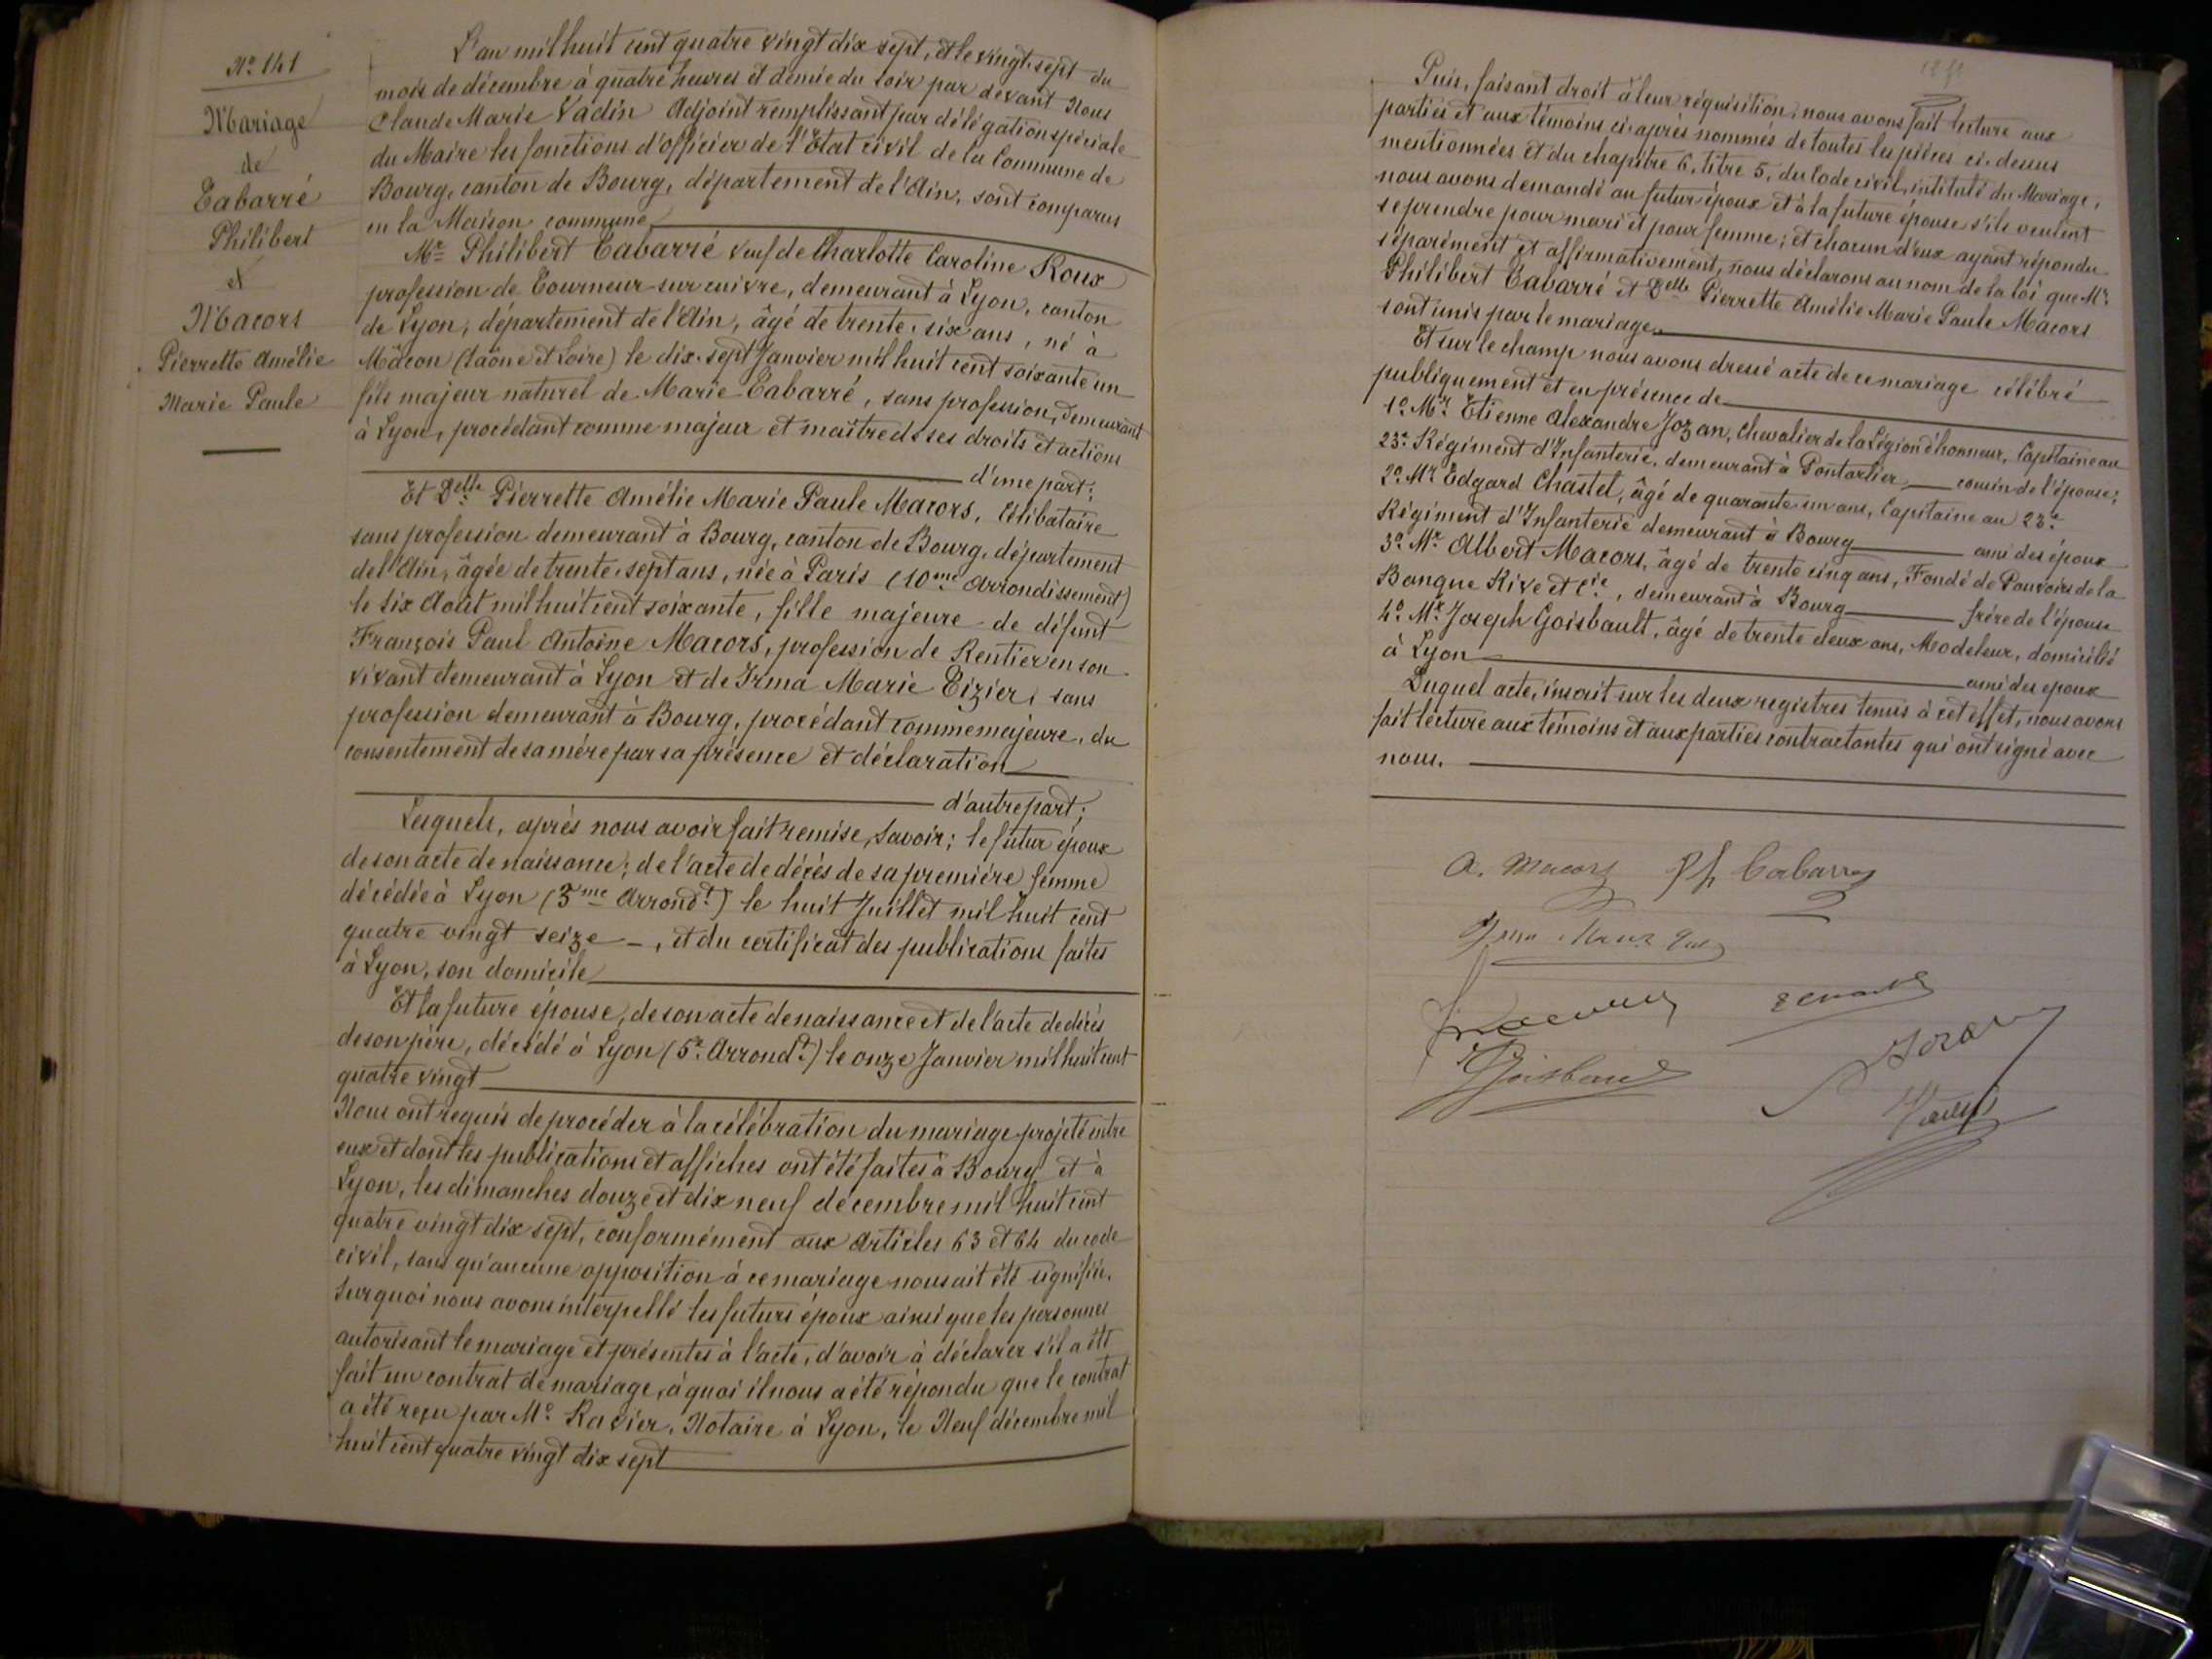 N° 141
Mariage
de
Tabarré
Philibert
et
Macors
Pierrette Amélie
Marie Paule
L'an mil huit cent quatre vingt dix sept, et le vingt-sept du
mois de décembre à quatre heures et demie du soir par devant Nous
Claude Marie Vadin Adjoint remplissant par délégation spéciale
du Maire les fonctions d'officier de l'Etat civil de la Commune de
Bourg, canton de Bourg, département de l'Ain, sont comparus
en la Maison commune
Mr Philibert Tabarré veuf de Charlotte Caroline Roux
profession de Tourneur sur cuivre, demeurant à Lyon, canton
de Lyon, département de l'Ain, âgé de trente-six ans, né à
Mâcon (Saône et Loire) le dix-sept Janvier mil huit cent soixante un
fils majeur naturel de Marie Tabarré, sans profession, demeurant
à Lyon, procédant comme majeur et maître de ses droits et actions
d'une part;
Et Delle Pierrette Amélie Marie Paule Macors, Célibataire
sans profession demeurant à Bourg, canton de Bourg, département
de l'Ain, âgée de trente-sept ans, née à Paris (10me Arrondissement)
le six Août mil huit cent soixante, fille majeure de défunt
François Paul Antoine Macors, profession de Rentier en son
vivant demeurant à Lyon et de Irma Marie Tizier, sans
profession demeurant à Bourg, procédant comme majeure, du
consentement de sa mère par sa présence et déclaration
d'autre part;
Lesquels, après nous avoir fait remise, savoir; le futur époux
de son acte de naissance; de l'acte de décès de sa première femme
décédée à Lyon (3me Arrondt) le huit Juillet mil huit cent
quatre vingt seize -, et du certificat des publications faites
à Lyon, son domicile
Et la future épouse, de son acte de naissance et de l'acte de décès
de son père, décédé à Lyon (5e Arrondt) le onze Janvier mil huit cent
quatre vingt
Nous ont requis de procéder à la célébration du mariage projeté entre
eux et dont les publications et affiches ont été faites à Bourg et à
Lyon, les dimanches douze et dix neuf décembre mil huit cent
quatre vingt dix sept, conformément aux Articles 63 et 64 du code
civil, sans qu'aucune opposition à ce mariage nous ait été signifiée.
Sur quoi nous avons interpellé les futurs époux ainsi que les personnes
autorisant le mariage et présentes à l'acte, d'avoir à déclarer s'il a été
fait un contrat de mariage, à quoi il nous a été répondu que le contrat
a été reçu par Me Ravier, Notaire à Lyon, le Neuf décembre mil
huit cent quatre vingt dix sept
Puis, faisant droit à leur réquisition, nous avons fait lecture aux
parties et aux témoins ci-après nommés de toutes les pièces ci-dessus
mentionnées et du chapitre 6, titre 5, du Code civil, intitulé du Mariage,
nous avons demandé au futur époux et à la future épouse s'ils veulent
se prendre pour mari et pour femme; et chacun d'eux ayant répondu
séparément et affirmativement, nous déclarons au nom de la loi que Mr
Philibert Tabarré et Delle Pierrette Amélie Marie Paule Macors
sont unis par le mariage.
Et sur le champ nous avons dressé acte de ce mariage célébré
publiquement et en présence de
1° Mr Etienne Alexandre Jozan, Chevalier de la Légion d'honneur, Capitaine au
23e Régiment d'Infanterie, demeurant à Pontarlier cousin de l'épouse;
2° Mr Edgard Chastel, âgé de quarante un ans, Capitaine au 23e
Régiment d'Infanterie demeurant à Bourg ami des époux
3° Mr Albert Macors, âgé de trente cinq ans, Fondé de Pouvoirs de la
Banque Rive et Cie, demeurant à Bourg frère de l'épouse
4° Mr Joseph Goisbault, âgé de trente deux ans, Modeleur, domicilié
à Lyon ami des époux
Duquel acte, inscrit sur les deux registres tenus à cet effet, nous avons
fait lecture aux témoins et aux parties contractantes qui ont signé avec
nous.
A. Macors Ph Tabarré
Goisbault
Jozan